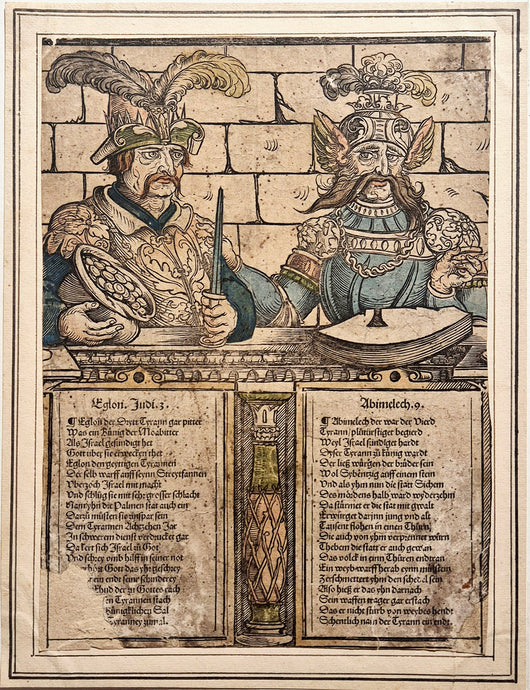 Eglon. Judi. 3.
¶ Eglon der Dryt Tyrann gar pitter
Was ein Künig der Moabitter
Als Israel gesündiget het
Gott über sie erwecken thet
Eglon den zeytigen Tyrannen
Der selb warff auff seynn Streytfannen
Uberzoch Israel mit macht
Und schlug sie mit sehr grosser schlacht
Nam yhn die Palmen stat auch ein
Darzů můsten sie unterthan sein
Dem Tyrannen Achtzehen Jar
In schwerem dienst verdrucket gar
Da kert sich Israel zů Got
Und schrey umb hülff in seiner not
Gott das yhr geschrey
ein endt seine schinderey
Ehud der zů Gottes
Tyrannen stach
künigklichen Sal
Tyranney zůmal.
Abimelech. 9.
¶ Abimelech der war der Vierd
Tyrann/plůtdürstiger begierd
Weyl Israel sündiget hardt
Dyser Tyrann zů künig wardt
Der ließ würgen der brüder sein
Wol Sybentzig auff einem stein
Und als yhm nun die statt Sichem
Des mördens halb ward wyderzehm
Da stürmet er die stat mit gwalt
Erwürget darinn jung und alt
Tausent flohen in einen Thurn
Die auch von yhm verprennet wurn
Thebem die statt er auch gewan
Das volck in eym Thurn endtran
Ein weyb warff herab eyn mülstein
Zerschmettert yhm den schedel sein
Also hieß er das yhn darnach
Sein waffentrager gar erstach
Das er nicht sturb von weybes hendt
Schentlich nam der Tyrann ein endt.